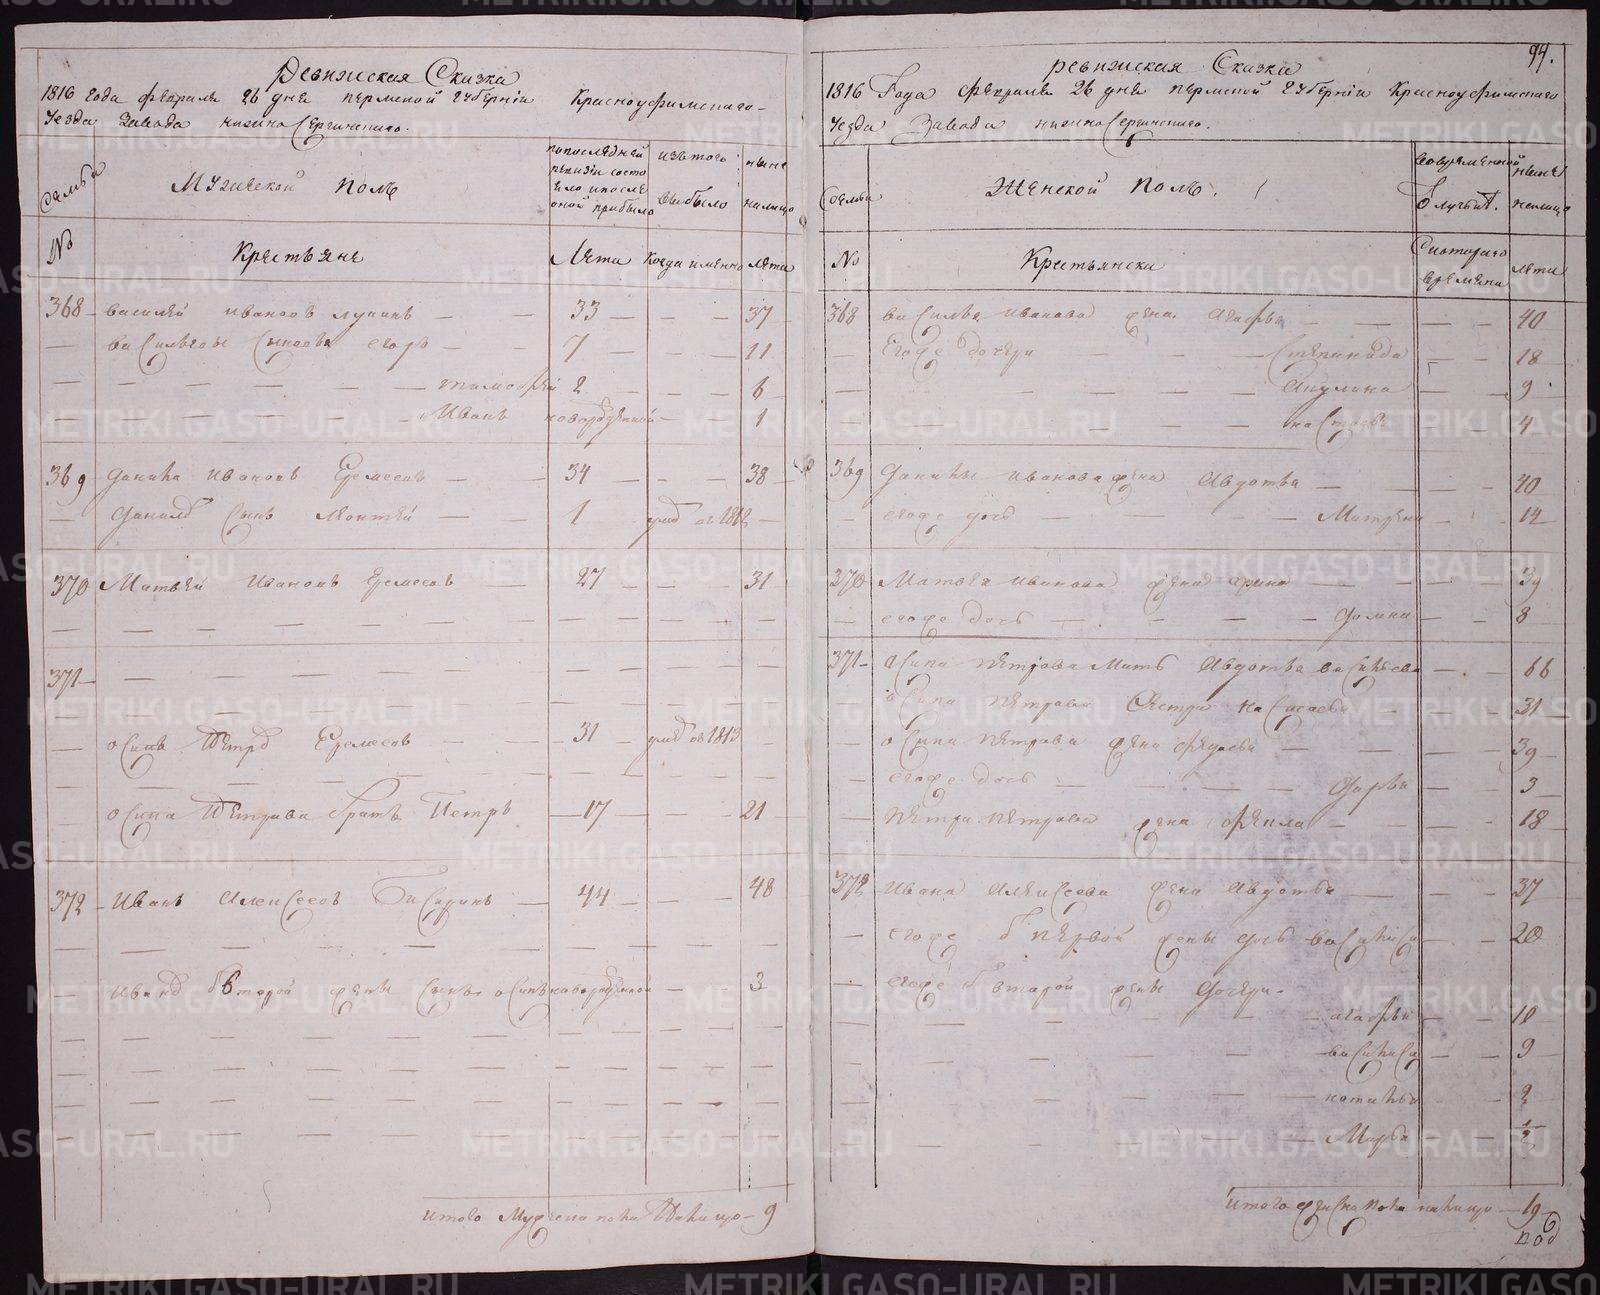 Ревижская Сказка
1816 Года Февраля 26 дня пермской губерніи Красноуфимскаго
Уезда Завода нижно Сергинскаго.
Семьи
Мужеской полъ
попоследней
ревизіи состо
яло ипосле
оной прибыло
изъ того
выбыло
ныне
налицо
№
Крестьяне
Лета
Когда именно
лета
368 василей ивановъ лупинъ 33 37
васильевы Сыновья егоръ 7 11
тимофей 2 6
Иванъ новорожденной 1
369 данила ивановъ Еремеевъ 34 38
данилъ Сынъ Леонтей 1 умръ въ 1812
370 Матвей ивановъ Еремеевъ 27 31
371
осипъ Петръ Еремеевъ 31 умръ въ 1813
осипа Петрова братъ Петръ 17 21
372 Иванъ Алексеевъ Бисеринъ 44 48
ивана второй жены Сынъ осипъ новорожденной 3
итого Мужеска пола Налицо 9
94.
ревижская Сказка
1816 Года Февраля 26 дня пермской губерніи Красноуфимскаго
Уезда Завода нижно Сергинскаго.
Семьи
Женской полъ.
вовременной
Отлучке.
ныне
налицо
№
Крестьянски
Скотораго
времяни
лета
368 василья иванова жена Агафья 40
Егоже дочери Степанида 18
Акулина 9
настасья 4
369 данилы иванова жена Авдотья 40
егоже дочь Матрена 14
370 Матвея иванова жена арина 39
егоже дочь домна 8
371 осипа петрова Мать Авдотья васильева 66
осипа петрова Сестра настасья 31
осипа петрова жена федосья 39
егоже дочь дарья 3
петра петрова жена фекла 18
372 ивана Алексеева жена Авдотья 37
егоже б первой жены дочь василиса 20
егоже второй жены дочери.
агафья 10
василиса 9
наталья 2
Марфа
итого женска пола налицо 19